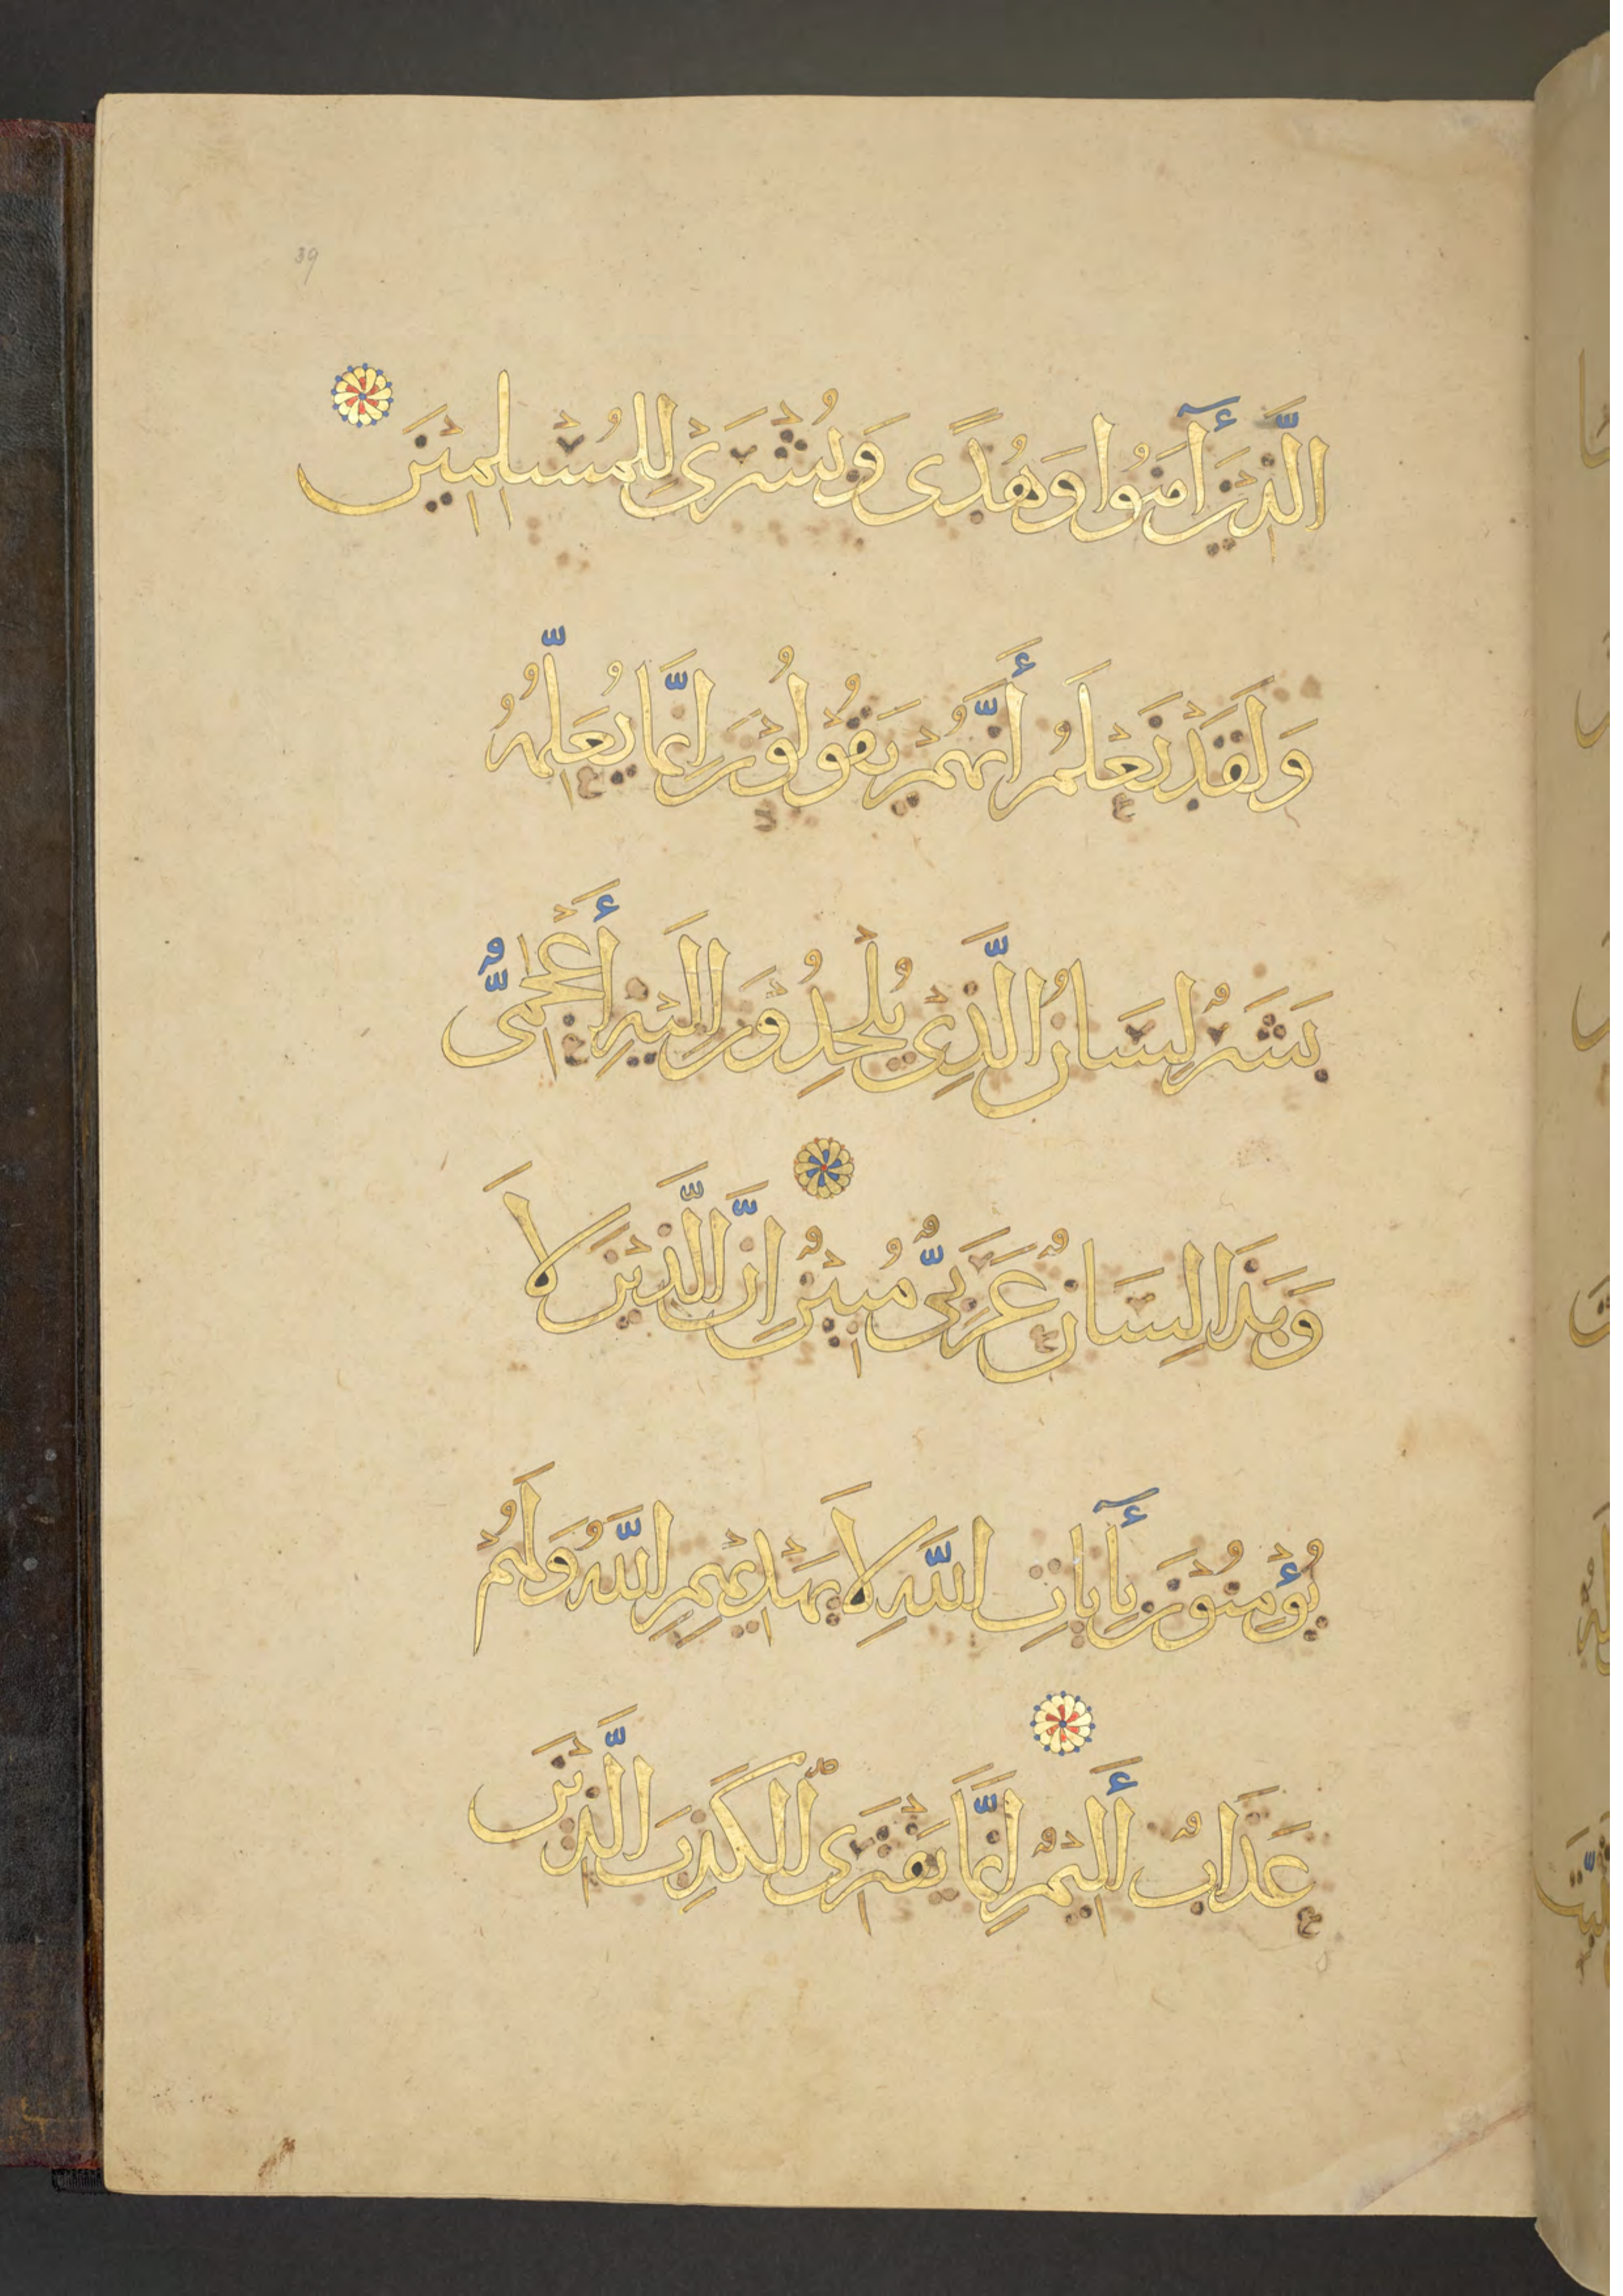 39
الَّذِيْنَ أٓمَنُوا وَهُدًى وَبُشْرَىْ لِلْمُسْلِمِيْنَ
وَلَقَدْ نَعْلَمُ أَنَّهُمْ يَقُوْلُوْنَ اِنَّمَا يُعَلِّمُهُ
بَشَرٌ لِسَانُ الَّذِىْ يُلْحِدُوْنَ اِلَيْهِ أَعْجَمِىٌّ
وَهَذَا لِسَانٌ عَرَبِىٌّ مُبِيْنٌ اِنَّ الَّذِيْنَ لَا
يُؤْمِنُوْنَ بِأٓيَاتِ اللَّهِ لَا يَهْدِيْهِمِ اللَّهُ وَلَهُمْ
عَذَابٌ أَلِيْمٌ اِنَّمَا يَفْتَرِى الْكَذِبَ الَّذِيْنَ